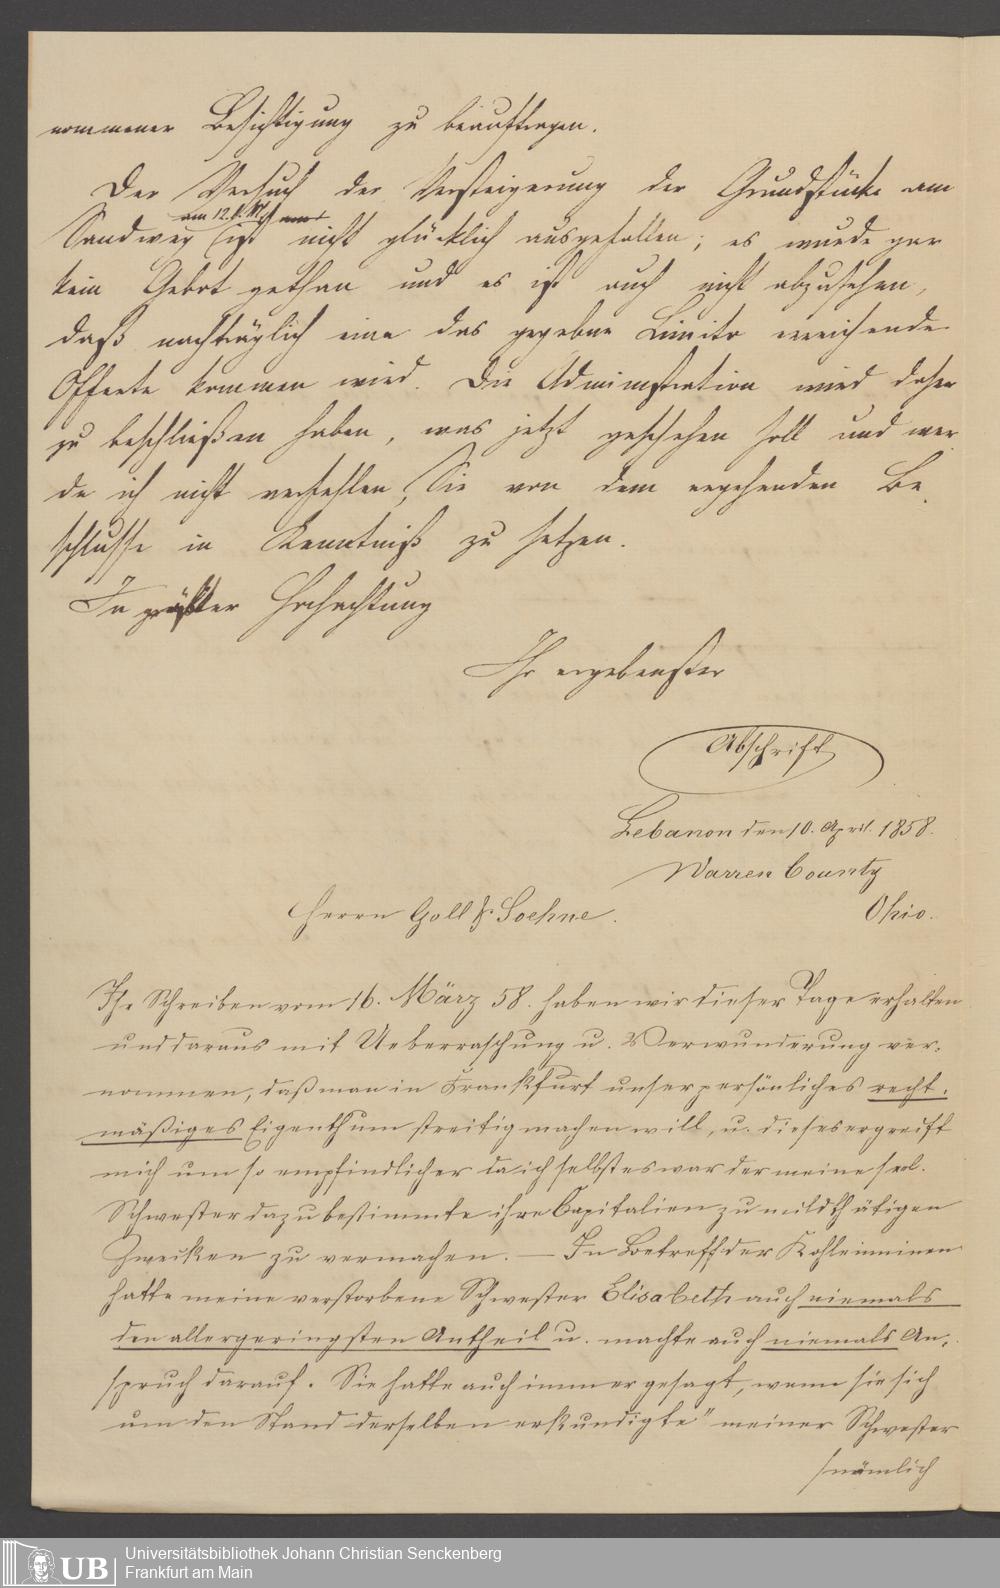 nommener Besichtigung zu beauftragen.
Der Versuch der Versteigerung der Grundstücke am
am 12. d. M.
Sandweg ist nicht glücklich ausgefallen; es wurde gar
kein Gebot gethan und es ist auch nicht abzusehen,
daß nachträglich eine das gegebene Limito erreichende
Offerte kommen wird. Die Administration wird daher
zu beschließen haben, was jetzt geschehen soll und wer
de ich nicht verfehlen, Sie von dem ergehenden Be
schlusse in Kenntniß zu setzen.
In größter Hochachtung
Ihr ergebenster
Abschrift
Lebanon den 10. April. 1858.
Warren County
Herrn Goll & Soehne. Ohio.
Ihr Schreiben vom 16. März 58. haben wir dieser Tage erhalten
und daraus mit Ueberraschung u. Verwunderung ver-
nommen, daß man in Frankfurt unser persönliches recht-
mäßiges Eigenthum streitig machen will, u. dieses ergreift
mich um so empfindlicher da ich selbst es war der meine seel.
Schwester dazu bestimmte ihre Capitalien zu mildthätigen
Zwecken zu vermachen. — In Betreff der Kohleinminen
hatte meine verstorbene Schwester Elisabeth auch niemals
den allergeringsten Antheil u. machte auch niemals An-
spruch darauf. Sie hatte auch immer gesagt, wenn sie sich
um den Stand derselben erkundigte " meiner Schwester
/nämlich
UB Universitätsbibliothek Johann Christian Senckenberg
Frankfurt am Main